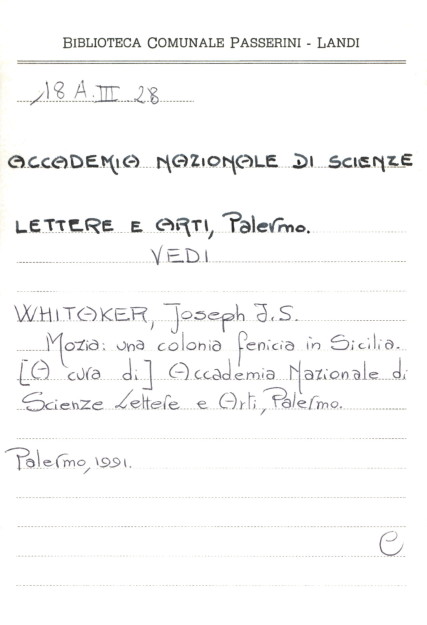 BIBLIOTECA COMUNALE PASSERINI - LANDI
18 A.III 28
ACCADEMIA NAZIONALE DI SCIENZE
LETTERE E ARTI, Palermo.
VEDI
WHITAKER, Joseph J.S.
Mozia: una colonia fenicia in Sicilia.
[A cura di] Accademia Nazionale di
Scienze Lettere e Arti, Palermo.
Palermo, 1991.
C